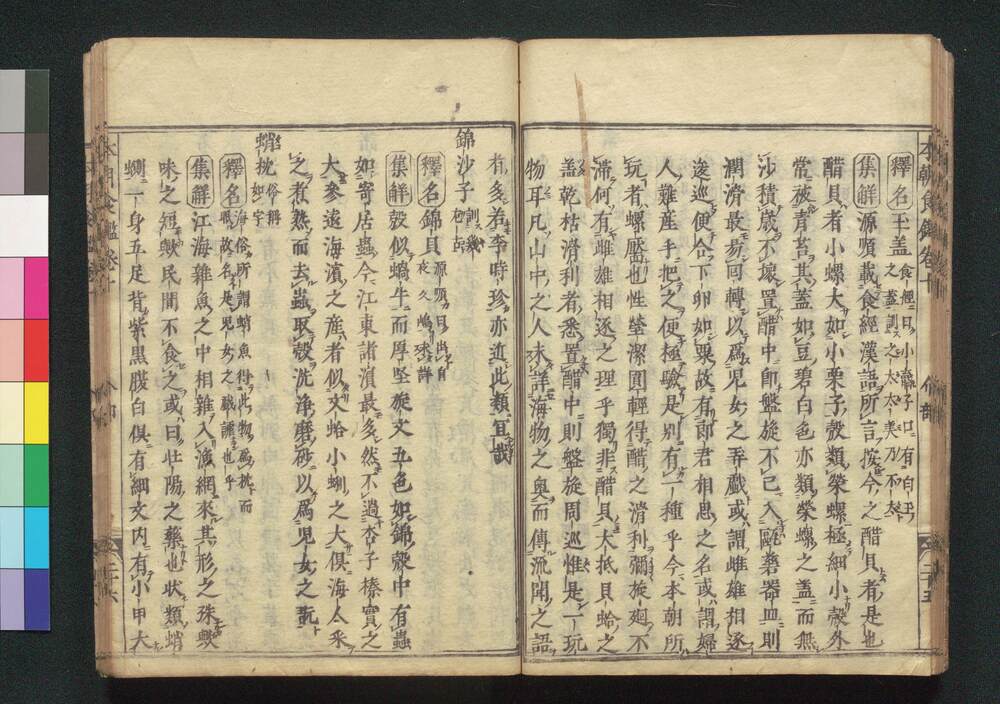 釋名王盖食經曰小羸子口有白玉
之蓋訓之太太美乃不太
集解源順載食經漢語所言按今之醋貝者是也
醋貝者小螺大如小栗子殻類榮螺極細小殻外
常被青苔其蓋如豆碧白色亦類榮螺之蓋而無
沙積歳不壞置醋中卽盤旋不已入甌藥器皿則
潤滑最易回轉以爲兒女之弄戲或謂雌雄相逐
逡巡便合下卵如粟故有郞君相思之名或謂婦
人難産手把之便極驗是別有一種乎今本朝所
玩者螺靨也性瑩潔圓輕得醋之滑利彌旋廻不
滯何有雌雄相逐之理乎獨非醋貝大抵貝蛤之
盖乾枯滑利者悉置醋中則盤旋周巡惟是一玩
物耳凡山中之人未詳海物之奥而傳流聞之語
有多若李時珍亦近此類宜哉
錦沙子
釋名錦貝源順曰出自
夜久嶋殘詳
集解殻似蝸牛而厚堅旋文五色如錦殻中有蟲
如寄居蟲今江東諸濵最多然不過杏子榛實之
大參遠海濵之産者似文蛤小蜊之大俱海人釆
之煮熟而去蟲取殻洗浄磨砂以爲兒女之翫
蛸枕俗稱
如字
釋名海俗所謂蛸魚得此物爲枕而
眠故名是兒女之戲謡也乎
集解江海雜魚之中相雜入漁網來其形之殊
味之短歟民間不食之或曰壯陽之藥也狀類蛸
一身五足背紫黑腹白俱有細文内有小甲大
本朝食鑑卷十
介部
二十五
二十六